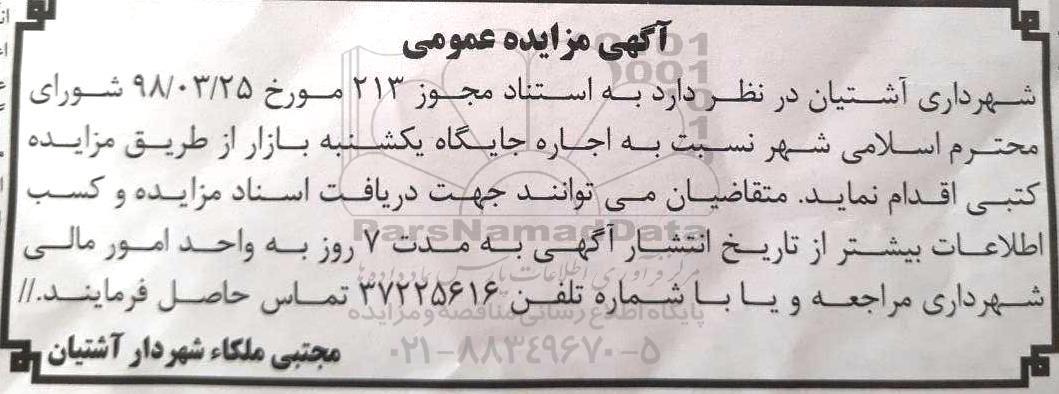 آگهی مزایده عمومی
شهرداری آشتیان در نظر دارد به استناد مجوز ۲۱۳ مورخ ۹۸/۰۳/۲۵ شورای
محترم اسلامی شهر نسبت به اجاره جایگاه یکشنبه بازار از طریق مزایده
کتبی اقدام نماید. متقاضیان می توانند جهت دریافت اسناد مزایده و کسب
اطلاعات بیشتر از تاریخ انتشار آگهی به مدت ۷ روز به واحد امور مالی
شهرداری مراجعه و یا با شماره تلفن ۳۷۲۲۵۶۱۶ تماس حاصل فرمایند.//
مجتبی ملکاء شهردار آشتیان
ParsNamadData
مرکز فرآوری اطلاعات پارس نماد داده ها
پایگاه اطلاع رسانی مناقصه و مزایده
۰۲۱-۸۸۳۴۹۶۷۰-۵